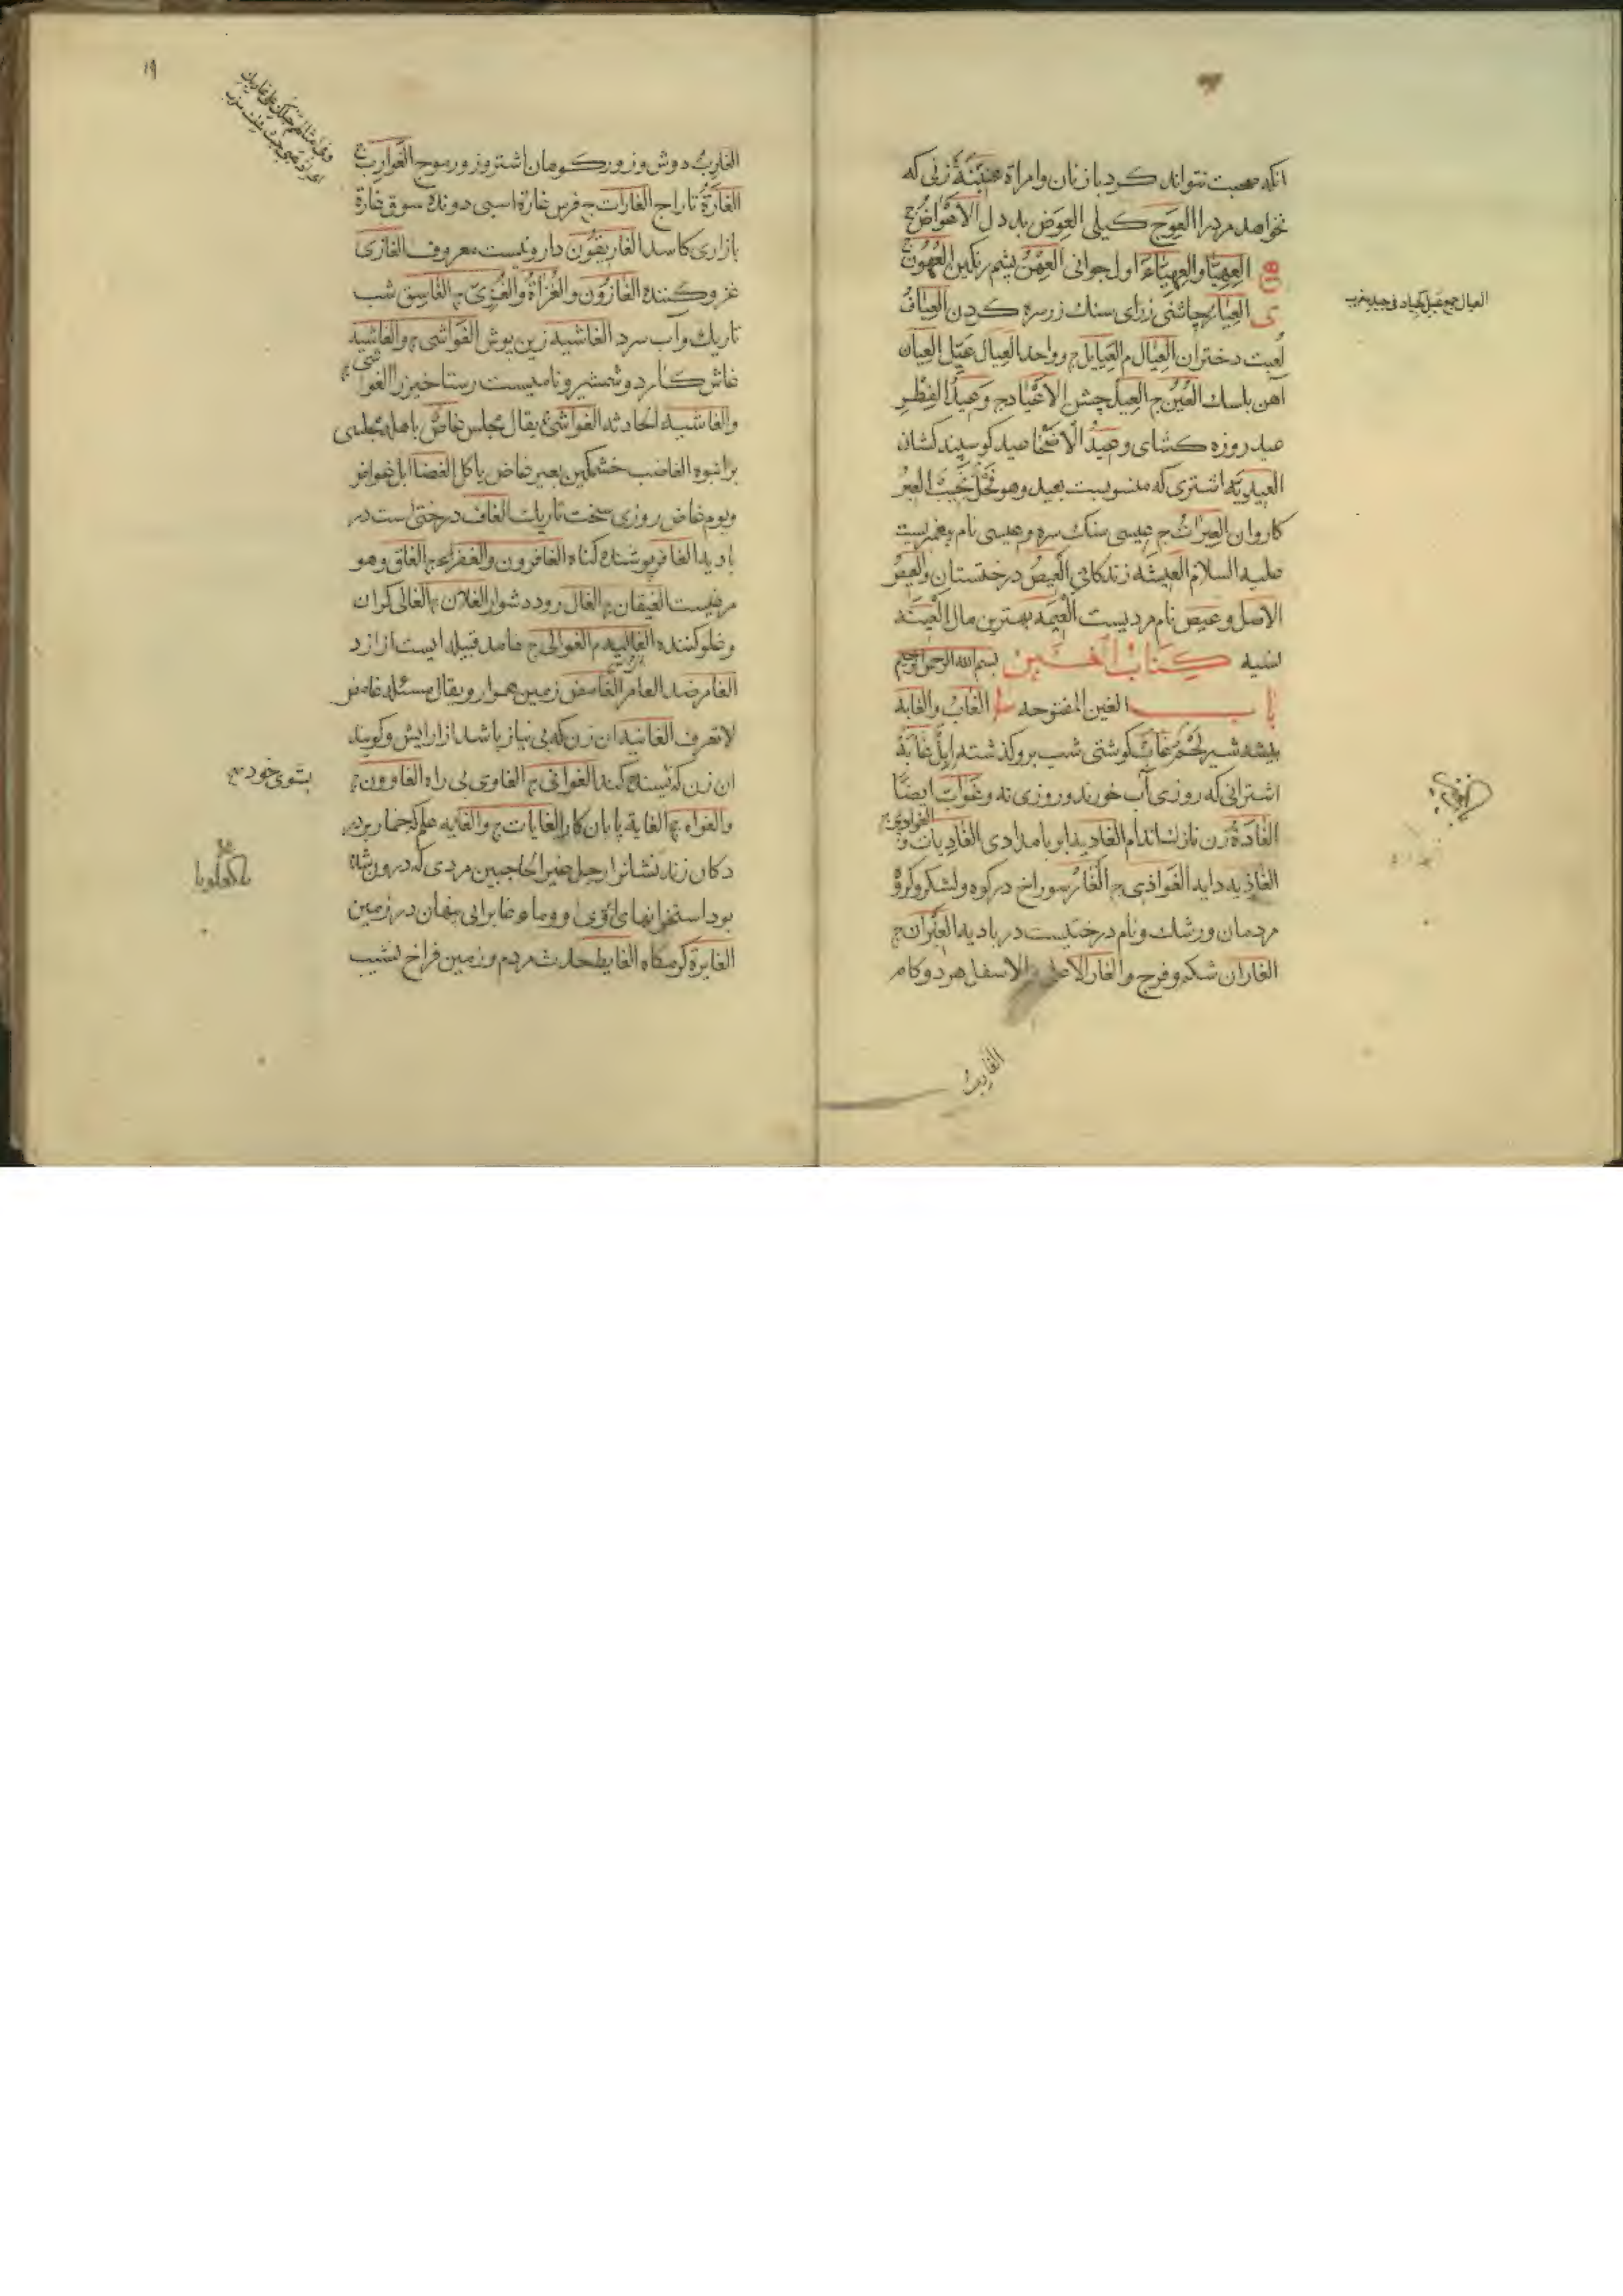 انکه صحبت نتواند کرد با زنان وامراة عنینة زنی که
نخواهد مرد را العوج کیلی العوض بدل الاعواض ج
العهبا والعهباء اول جوانی العهن پشم رنکین العهون ج
ی العیار چاشنی زرای سنك زر سره کردن العیاف
لعبت دختران العیال م العیایل ج وواحد العیال عیل العیان
آهن باسك العین ج العید جشن الاعیاد ج وعید الفطر
عید روزه کشای وعید الاضحا عید کوسپند کشان
العیدیه اشتری که منسوبست بعید وهو فحل نجیب العیر
کاروان العیرات ج عیسی سنك سره وعیسی نام پیغمبریست
علیه السلام العیشه زندکانی العیص درختستان والعیص
الاصل وعیص نام مردیست العیمه بهترین مال العینه
نسیه کتاب الغین بسم الله الرحمن الرحیم
باب الغین المفتوحه الغاب والغابه
بیشه شیر لحم غاب کوشتی شب برو کذشته ابل غابة
اشترانی که روزی آب خورند وروزی نه وغواب ایضا
الغادة زن نازك اندام الغادیه ابر بامدادی الغادیات و
الغوادی ج
الغاذیه دایه الغواذی ج الغار سوراخ در کوه ولشکر وکروه
مردمان ورشك ونام درختیست در بادیه الغیران ج
الغاران شکم وفرج والغار الاعلی والاسفل هر دو کام
الغارب
العیال جمع عیل کجیاد فی جید مغرب
۱۹
الغارب دوش وزور کومان اشتر وزور موج الغوارب ج
الغارة تاراج الغارات ج فرس غارة اسبی دونده سوق غارة
بازاری کاسد الغاریقون داروئیست معروف الغازی
غزو کننده الغازون والغزاة والغزی ج الغاسق شب
تاریك وآب سرد الغاشیه زین پوش الغواشی ج والغاشیه
غاش کارد وشمشیر ونامیست رستاخیز را الغواشی ج
والغاشیه الحادثه الغواشی یقال مجلس غاص باهله مجلسی
برانبوه الغاضب خشمکین بعیر غاض یاکل الغضا ابل غواض
ویوم غاض روزی سخت تاریك الغاف درختی است در
بادیه الغافر پوشنده کناه الغافرون والغفر ج الغاق وهو
مرغیست الغیقان ج الغال رود دشوار الغلان ج الغالی کران
وغلو کننده الغالیه م الغوالی ج غامد قبیله ایست از ازد
الغامر ضد العامر الغامض زمین هموار ویقال مسئله غامض
لا تعرف الغانیه ان زن که بی نیاز باشد از ارایش وکویند
ان زن که بسنده کند الغوانی ج الغاوی بی راه الغاوون ج
والغواه ج الغایة پایان کار الغایات ج والغایه علم که خمار بر در
دکان زند نشانرا رجل غیر الحاجبین مردی که درون شده
بود استخوانهای ابروی او وماء غایر ابی پنهان در زمین
الغایره کرمکاه الغایط حدث مردم وزمین فراخ نشیب
بشوی خود